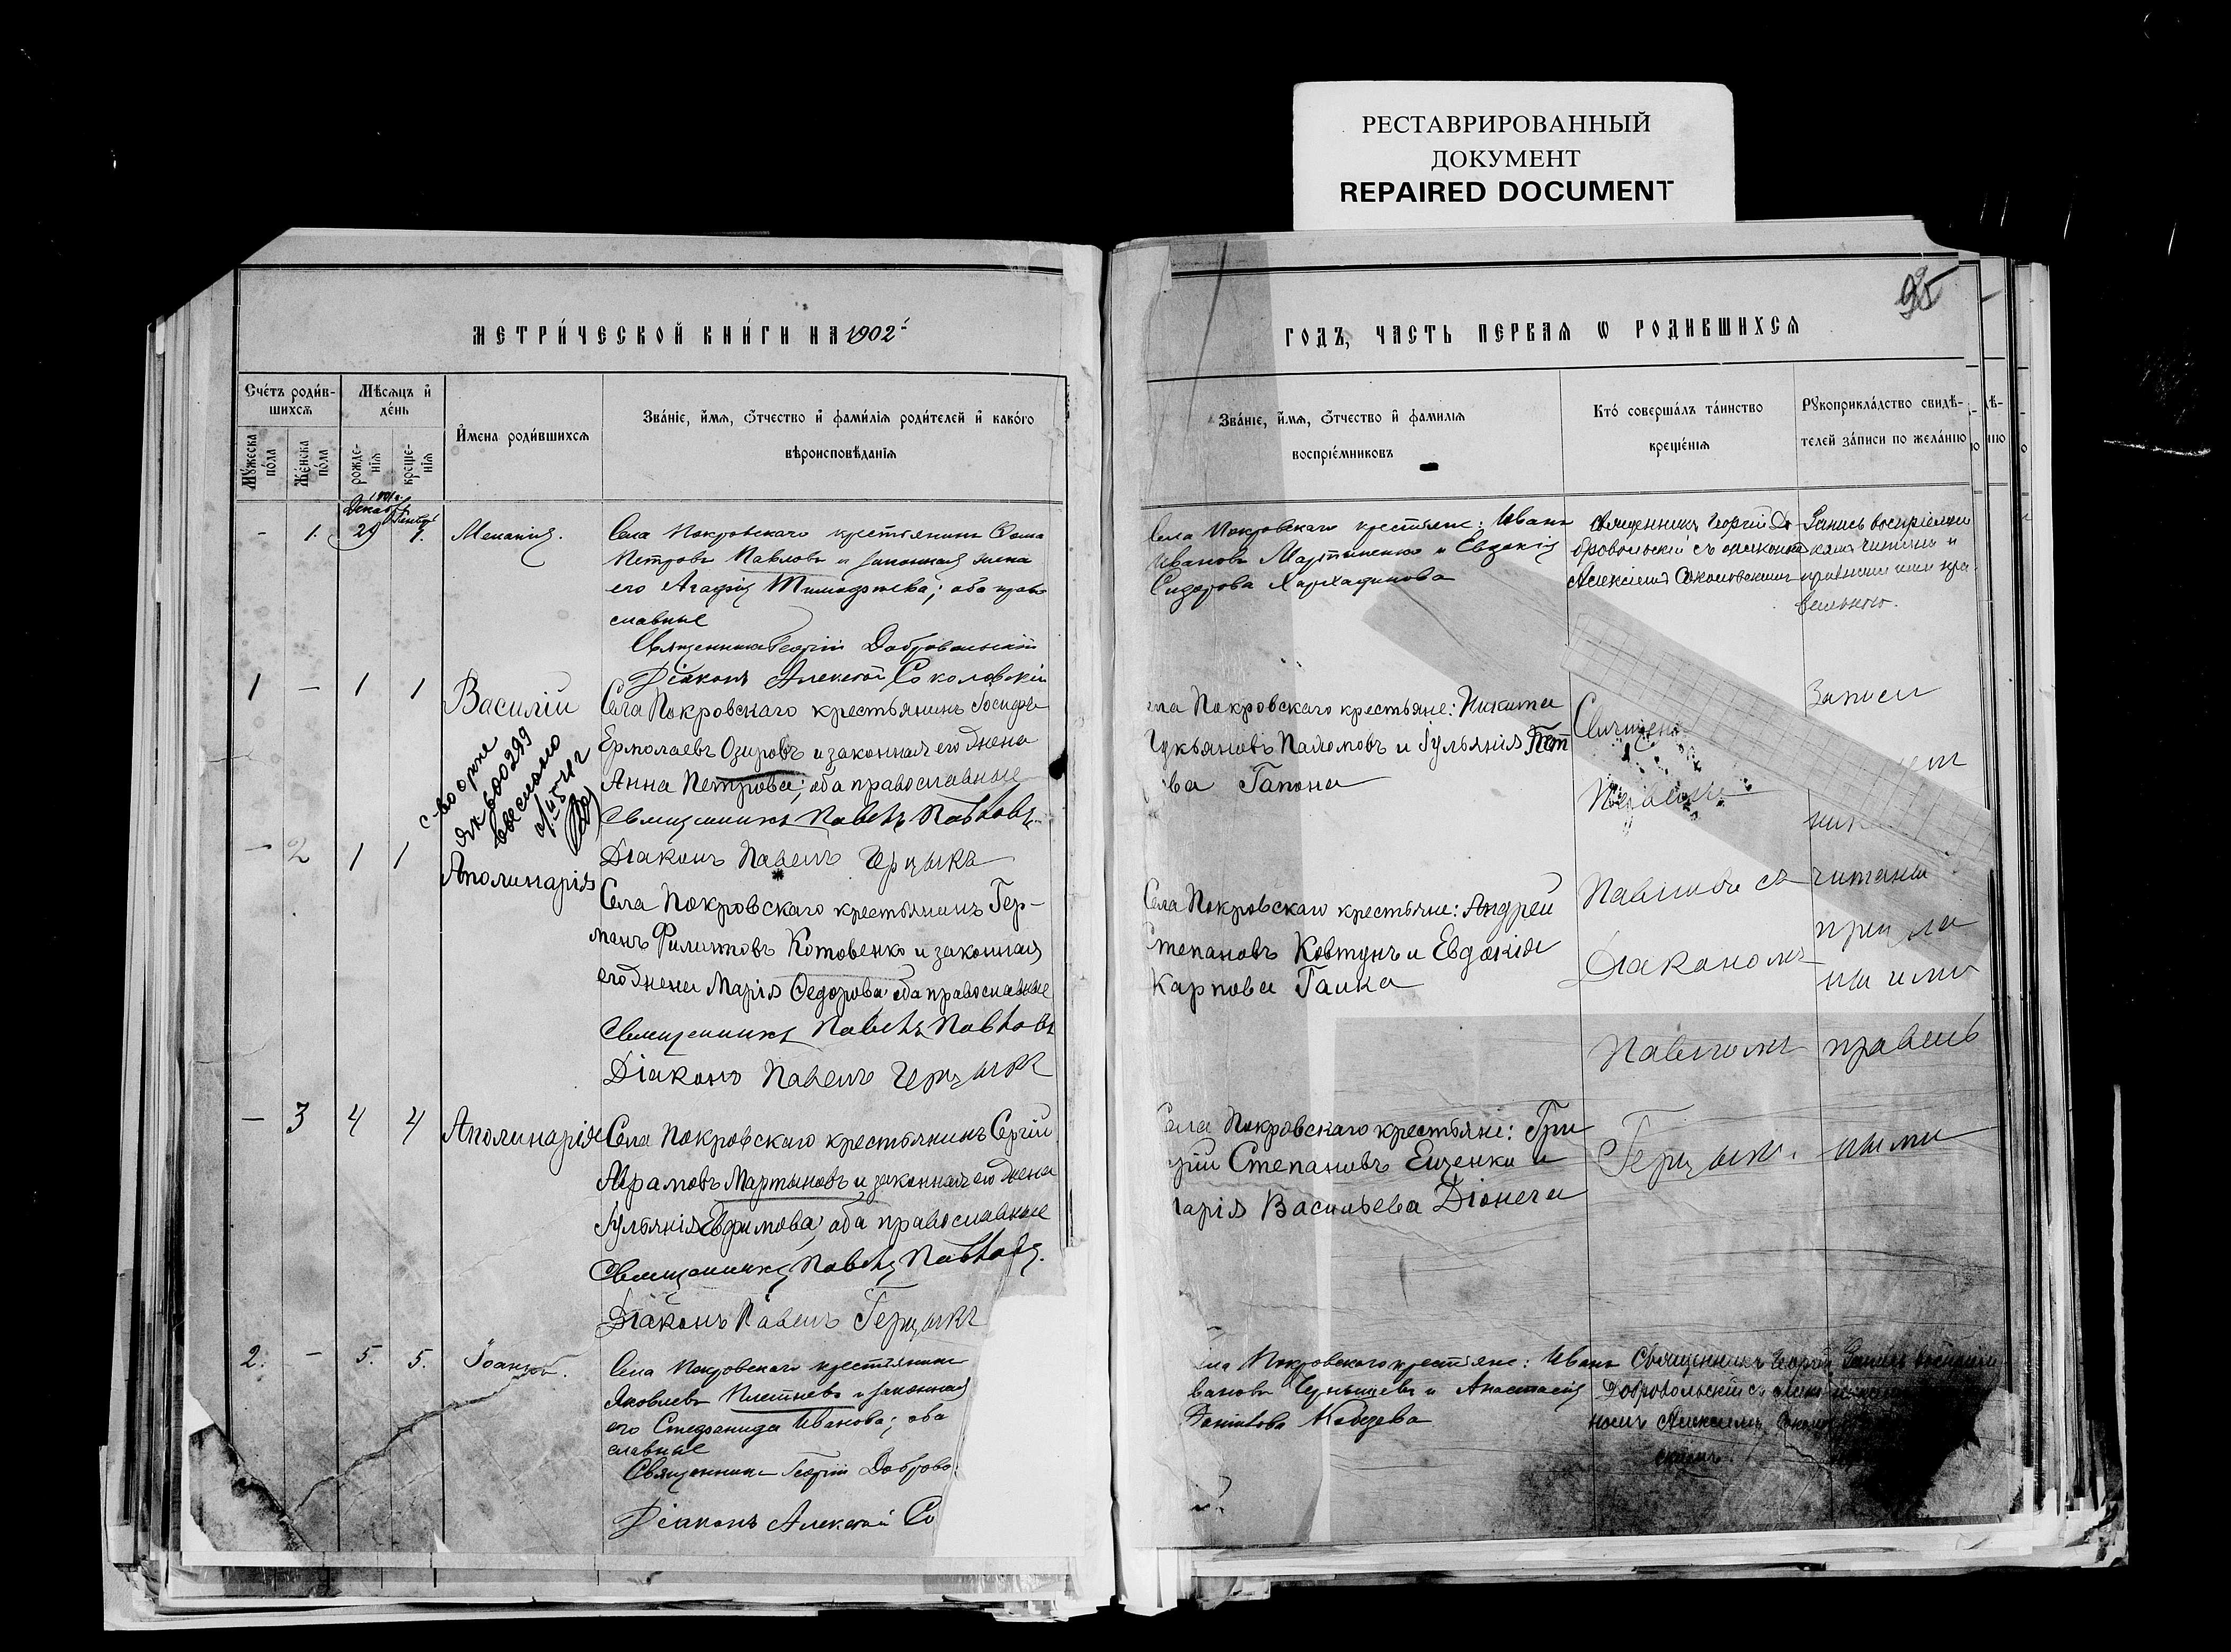 РЕСТАВРИРОВАННЫЙ
ДОКУМЕНТ
REPAIRED DOCUMENT
95
МЕТРИ́ЧЕСКОЙ КНИ́ГИ НА 1902
ГОДЪ, ЧАСТЬ ПЕРВАЯ Ѡ РОДИВШИХСЯ
Сче́тъ роди́в-
шихсѧ
Мѣсѧцъ и҆
де́нь
Мꙋ́жеска
по́ла
Же́нска
по́ла
рожде-
нїѧ
креще-
нїѧ
И҆мена роди́вшихсѧ
Зва́нїе, и҆́мѧ, ѻ҆́тчество и҆ фами́лїѧ роди́телей и҆ како́го
вѣроисповѣ́данїѧ
Зва́нїе, и҆́мѧ, ѻ҆́тчество и҆ фамилїѧ
воспрїе́мниковъ
Кто́ соверша́лъ та́инство
креще́нїѧ
Рꙋкоприкла́дство свидѣ́-
телей за́писи по жела́нїю
1901г.
Декабрь
Январь
- 1. 29 1. Меланія.
Села Покровскаго крестьянинъ Ѳома
Петровъ Павловъ и законная жена
его Агафія Тимофѣева; оба право
славные
Священникъ Георгій Добровольскій
Діаконъ Алексѣй Соколовскій
Села Покровскаго крестьяне: Иванъ
Ивановъ Мартыненко и Евдокія
Сидорова
Священникъ Георгій До
бровольскій съ діакономъ
Алексіемъ Соколовскимъ
Запись воспріемни
камъ читана и
признана ими пра
вильною.
1 - 1 1 Василій
Села Покровскаго крестьянинъ Іосифъ
Ермолаевъ Озировъ и законная его жена
Анна Петрова; оба православные
Священникъ Павелъ Павловъ
Діаконъ Павелъ Герцыкъ
с-во о рже
ЯК 600299
выслано
ла Покровскаго крестьяне: Никита
Лукьяновъ Пахомовъ и Іульянія Пет
ва Гапона
Священ
Павлом
Запись
- 2 1 1 Аполинарія
Села Покровскаго крестьянинъ Гер-
манъ Филиповъ Котовенко и законная
его жена Марія Ѳедорова оба православные
Священникъ Павелъ Павловъ
Діаконъ Павелъ Герцыкъ
Села Покровскаго крестьяне: Андрей
Степановъ Ковтунъ и Евдокія
Карпова Галка
Павловъ съ
Діакономъ
Павломъ
Герцык.
читана
призна
на ими
правиль
ными
- 3 4 4 Аполинарія
Села Покровскаго крестьянинъ Сергій
Аврамовъ Мартыновъ и законная его жена
Іульянія Евфимова; оба православные
Священникъ Павелъ Павловъ.
Діаконъ Павелъ Герцыкъ
Села Покровскаго крестьяне: Гри
рій Степановъ Ещенко и
арія Васильева Діонега
2. - 5. 5. Іоаннъ.
Села Покровскаго крестьянинъ
Яковлевъ Плетневъ и законная
его Стефанида Иванова; оба
славные
Священникъ Георгій Доброво
Діаконъ Алексѣй Со
ла Покровскаго крестьяне: Иванъ
вановъ Чернышевъ и Анастасія
Кобзева
Священникъ Георгій
Добровольскій съ діако
номъ Алексіемъ Соколов
скимъ.
Запись воспріем